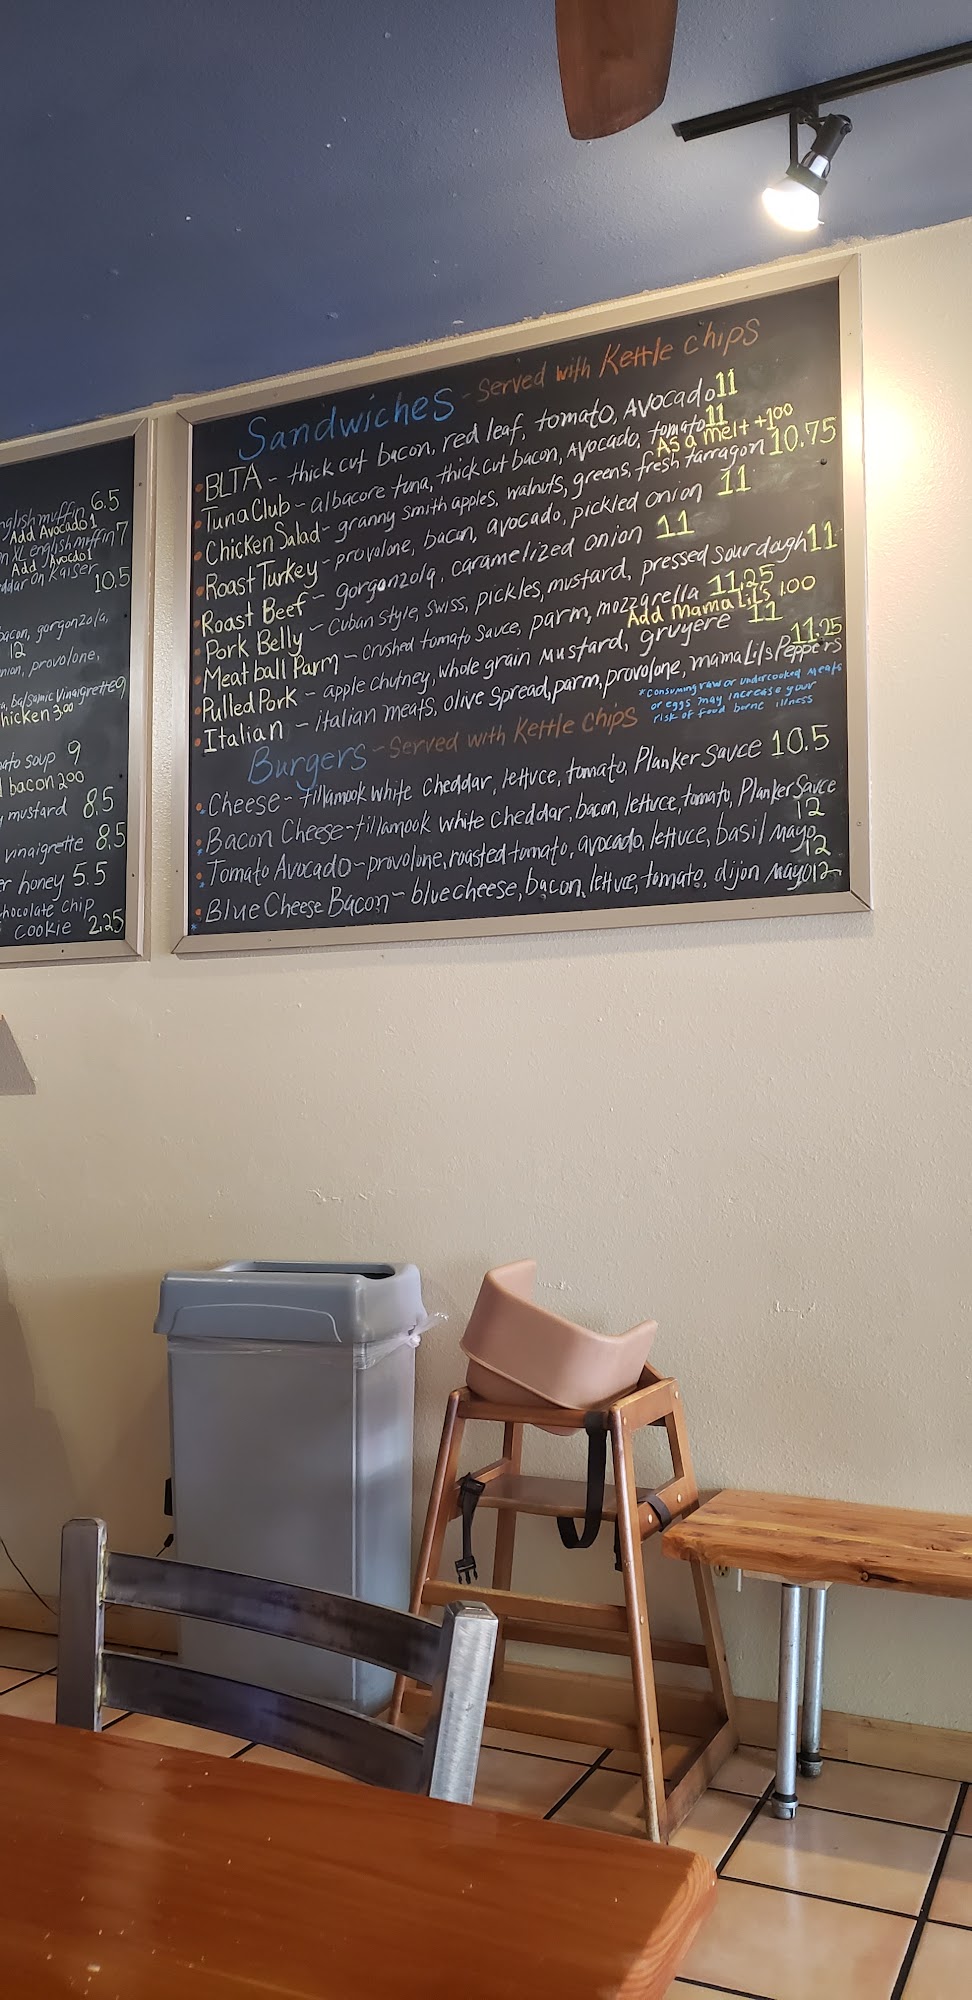 nglish muffin 6.5
Add Avocado 1
n XL english muffin 7
Add Avocado 1
ddar on Kaiser
10.5
bacon, gorgonzola,
12
nion, provolone,
a, balsamic vinaigrette 9
hicken 3.00
ato soup 9
d bacon 2.00
mustard 8.5
vinaigrette 8.5
er honey 5.5
hocolate chip
cookie 2.25
Sandwiches - Served with Kettle chips
BLTA - thick cut bacon, red leaf, tomato, Avocado 11
Tuna Club - albacore tuna, thick cut bacon, Avocado, tomato 11
As a melt +1.00
Chicken Salad - granny smith apples, walnuts, greens, fresh tarragon 10.75
Roast Turkey - provolone, bacon, avocado, pickled onion 11
Roast Beef - gorgonzola, caramelized onion 11
Pork Belly - Cuban Style, Swiss, pickles, mustard, pressed sourdough 11
Meatball Parm - crushed tomato sauce, parm, mozzarella 11.25
Add Mama Lil's 1.00
Pulled Pork - apple chutney, whole grain mustard, gruyere 11
Italian - italian meats, olive spread, parm, provolone, mama Lil's Peppers 11.25
*Consuming raw or undercooked meats
or eggs may increase your
risk of food borne illness
Burgers - Served with Kettle chips
Cheese - tillamook white cheddar, lettuce, tomato, Planker sauce 10.5
Bacon Cheese - tillamook white cheddar, bacon, lettuce, tomato, Planker Sauce 12
Tomato Avocado - provolone, roasted tomato, avocado, lettuce, basil mayo 12
Blue Cheese Bacon - blue cheese, bacon, lettuce, tomato, dijon mayo 12